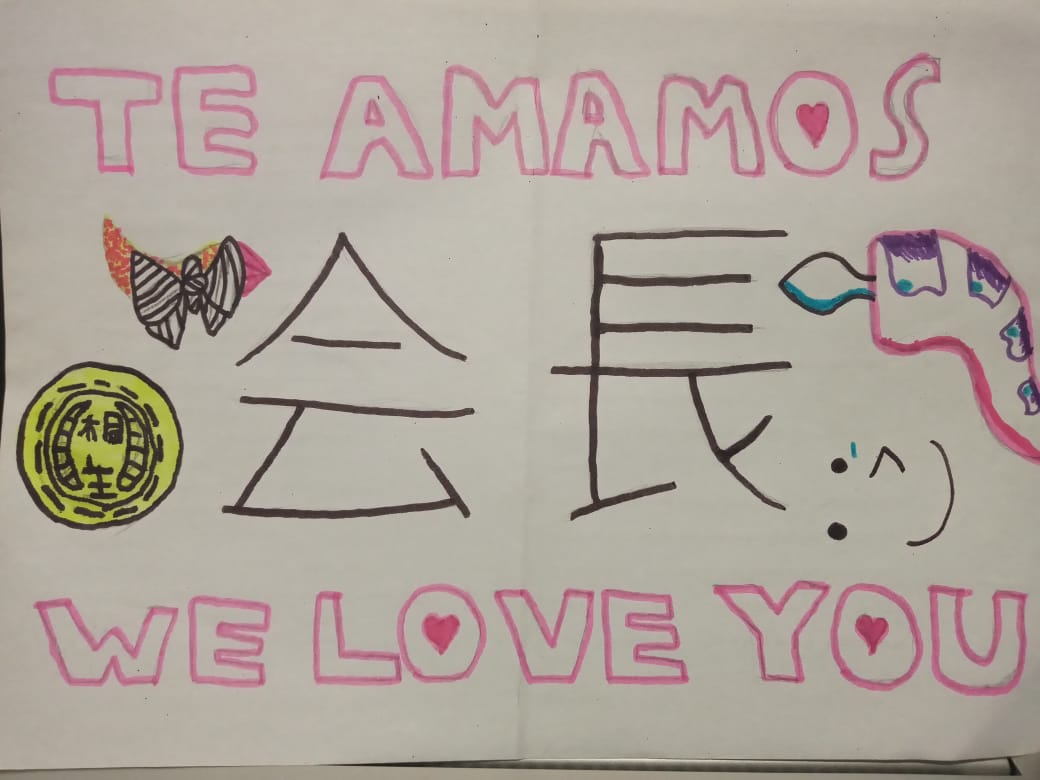 TE AMAMOS
会長
相
生
:^)
WE LOVE YOU